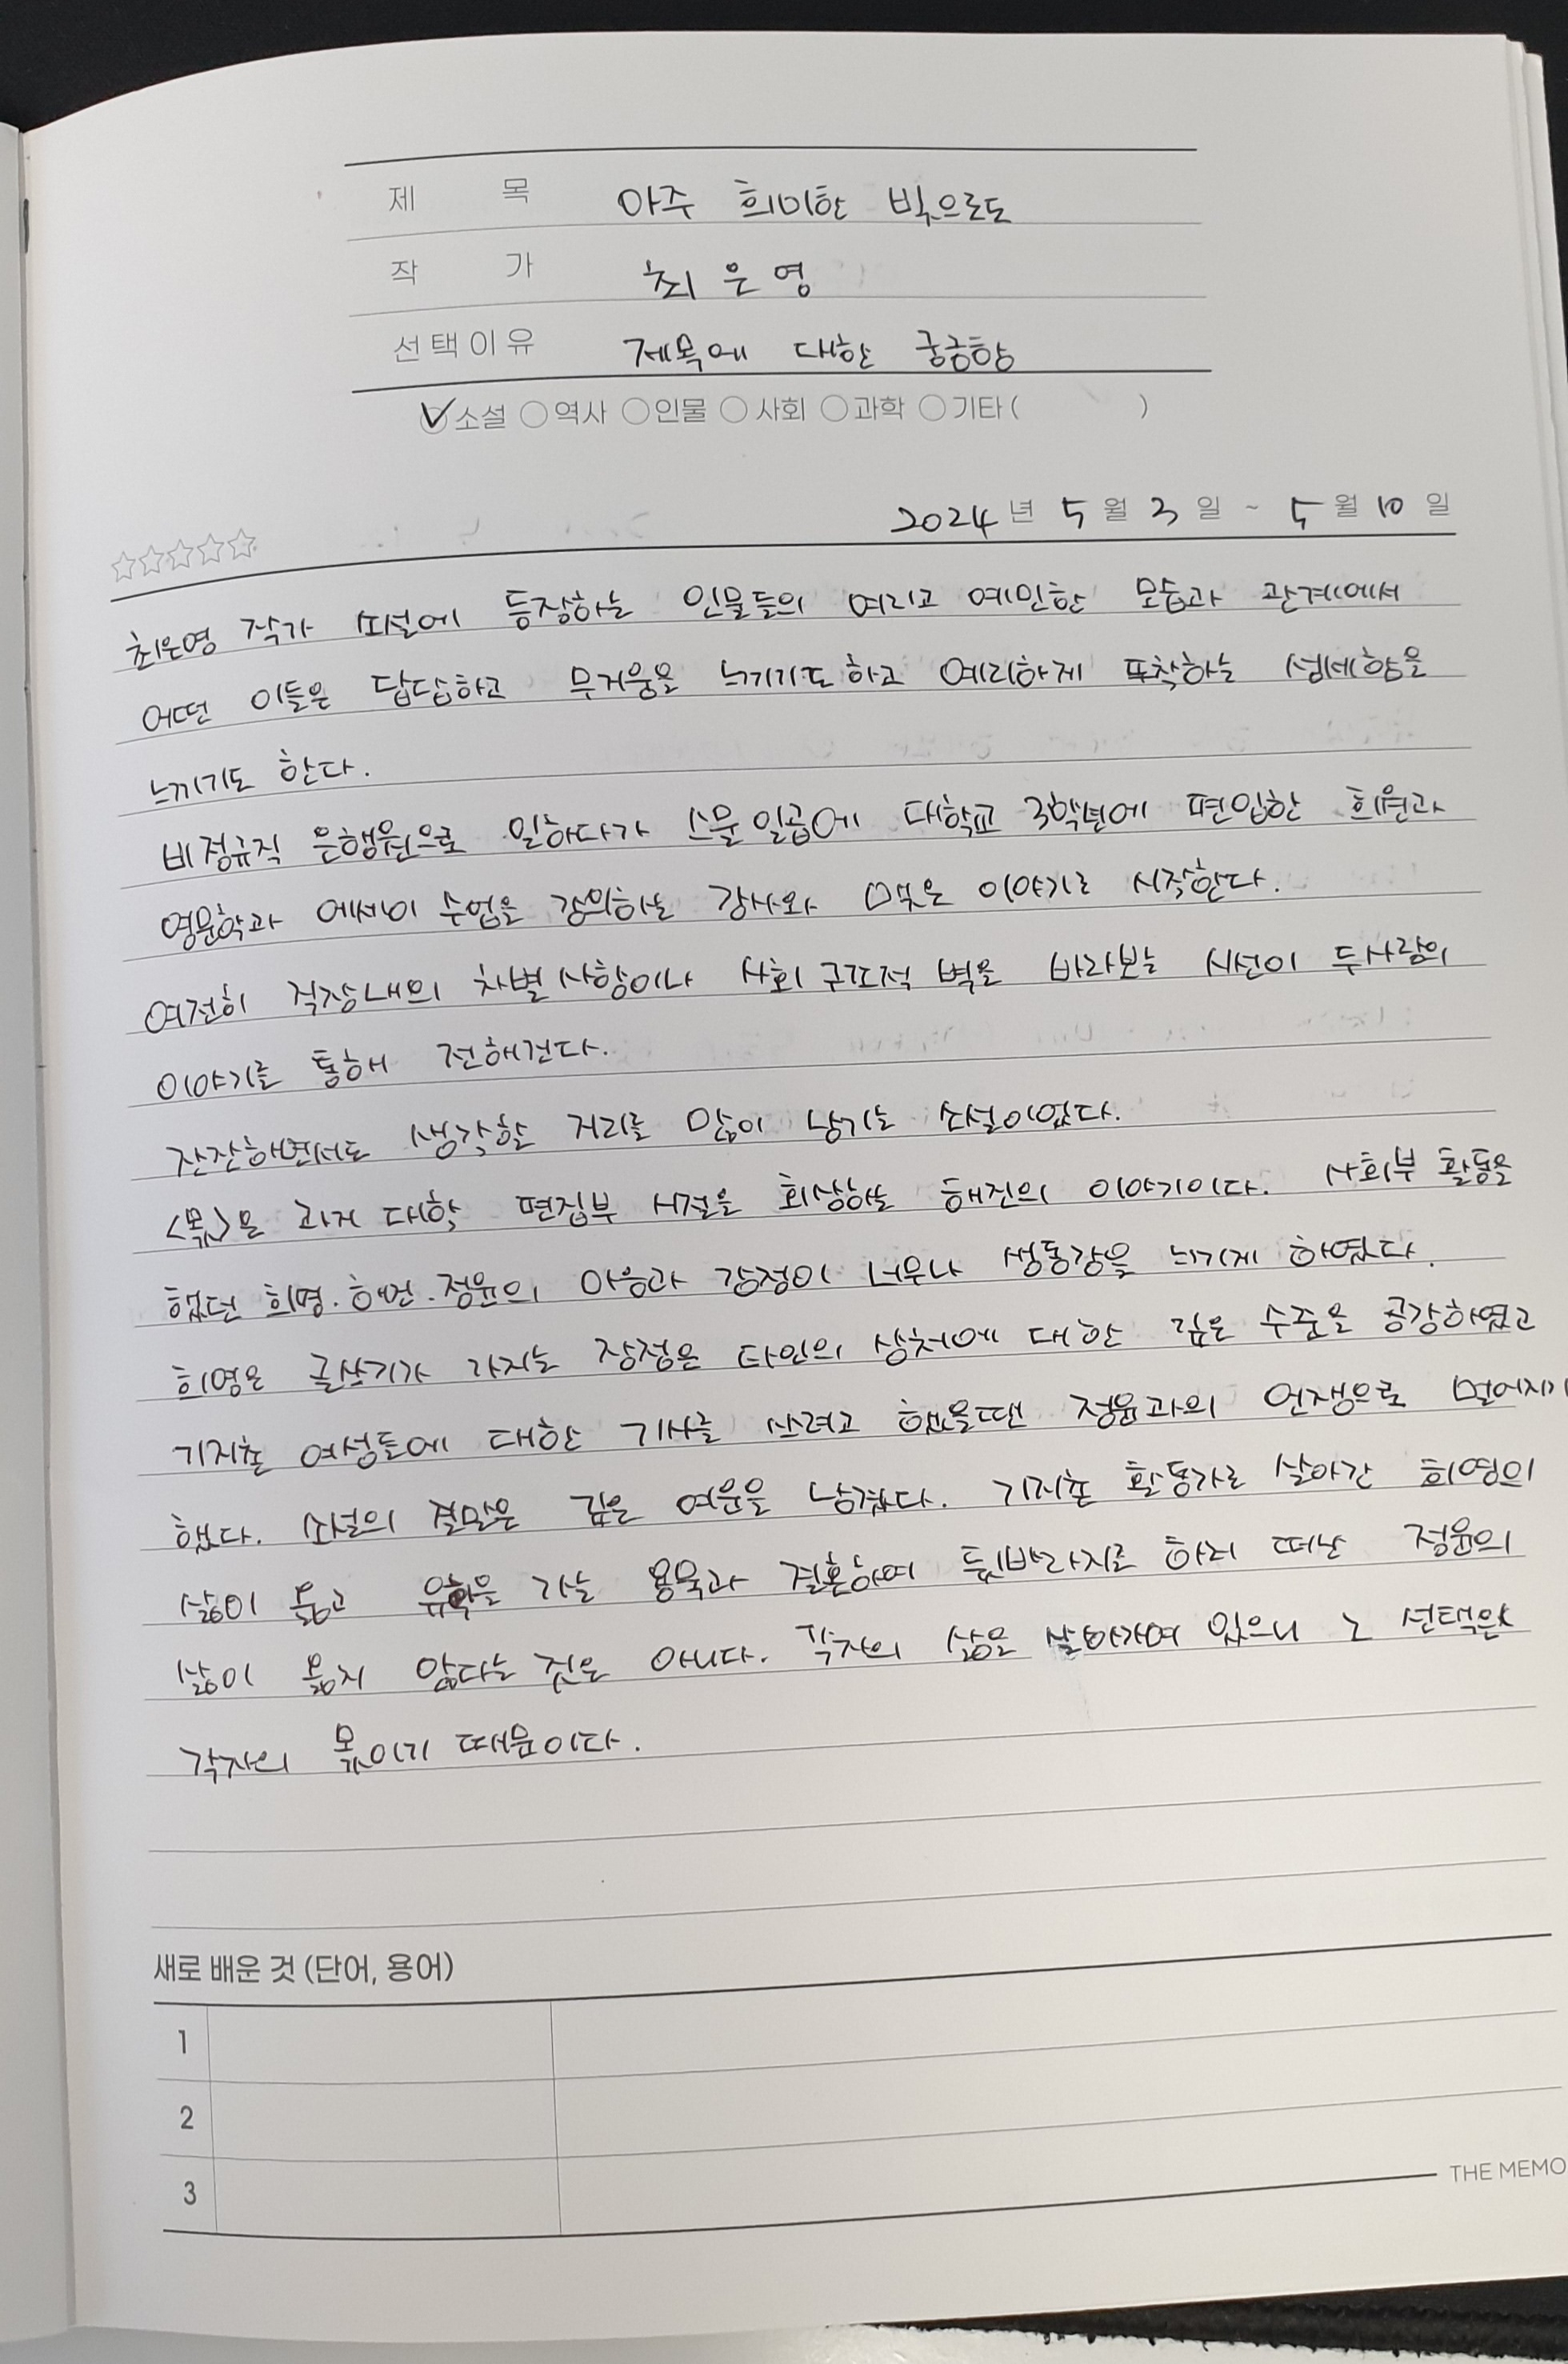 제 목 아주 희미한 빛으로도
작 가 최은영
선택이유 제목에 대한 궁금함
소설 역사 인물 사회 과학 기타( )
2024년 5월 3일 ~ 5월 10일
최은영 작가 소설에 등장하는 인물들의 여리고 예민한 모습과 관계에서
어떤 이들은 답답하고 무거움을 느끼기도 하고 예리하게 포착하는 섬세함을
느끼기도 한다.
비정규직 은행원으로 일하다가 스물일곱에 대학교 3학년에 편입한 희원과
영문학과 에세이 수업을 강의하는 강사와 맺은 이야기로 시작한다.
여전히 직장내의 차별사항이나 사회 구조적 벽을 바라보는 시선이 두사람의
이야기를 통해 전해진다.
잔잔하면서도 생각할 거리를 많이 남기는 소설이었다.
<몫>은 과거 대학 편집부 시절을 회상하는 해진의 이야기이다. 사회부 활동을
했던 희영.해먼.정윤의 마음과 감정이 너무나 생동감을 느끼게 하였다.
희영은 글쓰기가 가지는 장점은 타인의 상처에 대한 깊은 수준을 공감하였고
기지촌 여성들에 대한 기사를 쓰려고 했을땐 정윤과의 언쟁으로 멀어지기
했다. 소설의 결말은 깊은 여운을 남겼다. 기지촌 활동가로 살아간 희영의
삶이 옳고 유학을 가는 용욱과 결혼하여 뒷바라지를 하러 떠난 정윤의
삶이 옳지 않다는 것은 아니다. 각자의 삶을 살아가며 있으니 그 선택은
각자의 몫이기 때문이다.
새로 배운 것 (단어, 용어)
1
2
3
THE MEMO